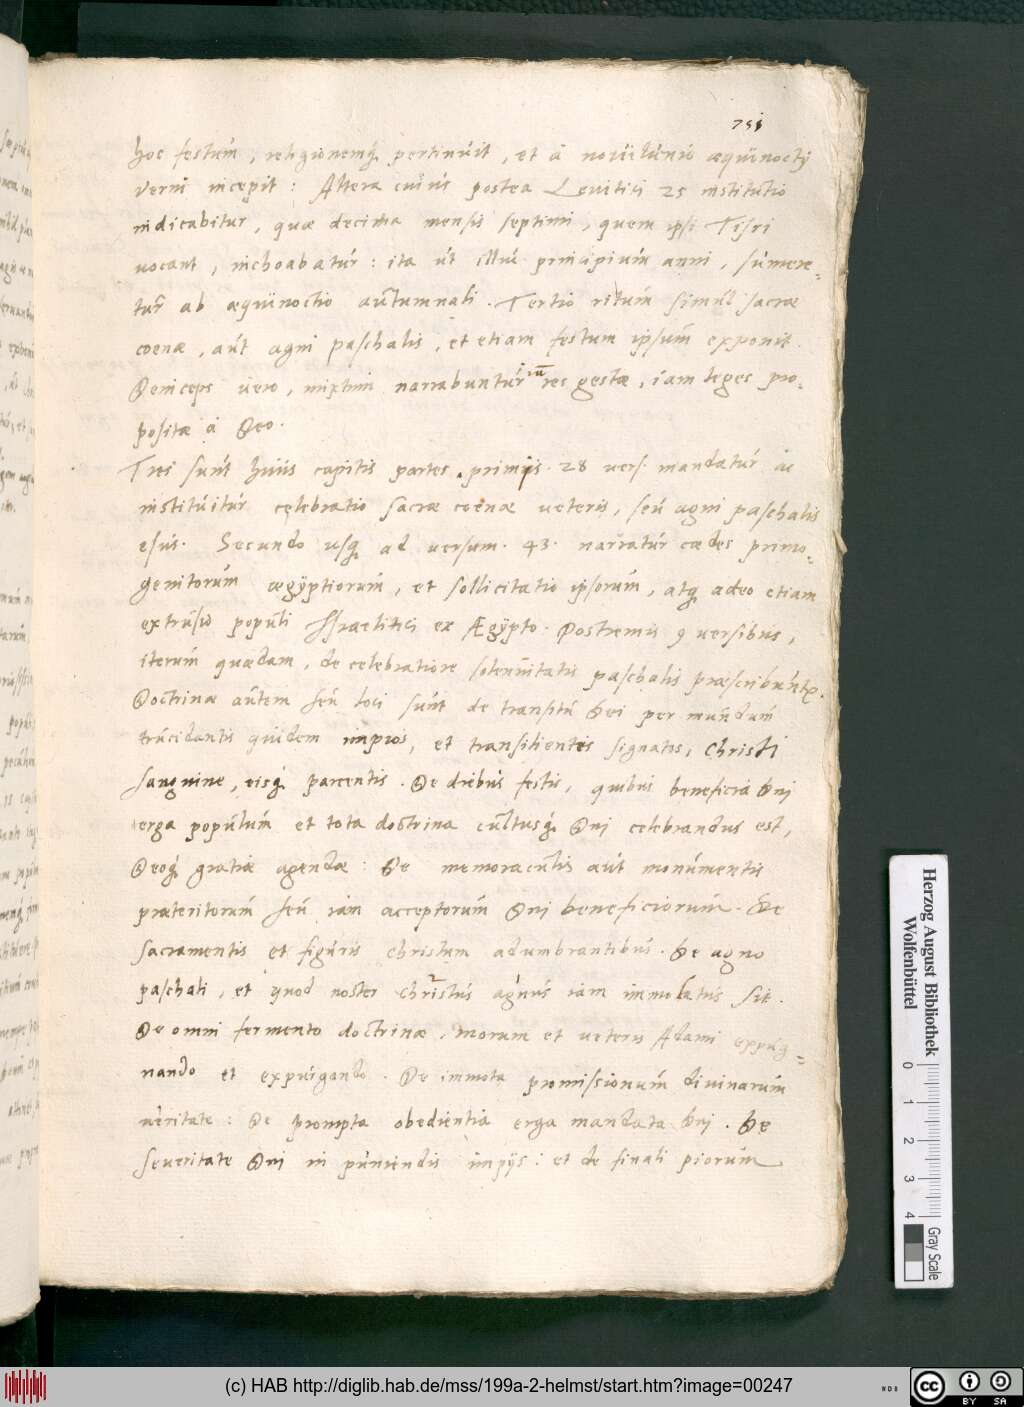 751
hoc festum, religionemq́ꝫ pertinuit, et à nouilunio æquinoctij
verni incepit: Altera cuius postea Levitici 25 institutio
indicabitur, quæ decima mensis septimi, quem ipsi Tisri
uocant, inchoabatur: ita út illúc principium anni, súmere-
tur ab æquinoctio autumnali. Tertio ritum simúl sacræ
coenæ, aút agni paschalis, et etiam festum ipsum exponit.
Deinceps uero, mixtim narrabuntur iā res gestæ, iam leges pro-
positæ à Deo.
Tres sunt huiús capitis partes, primis 28 vers. mandatur ac
instituitur celebratio sacræ coenæ ueteris, seú agni paschalis
esus. Secundo usq́ꝫ ad versum. 43. narratur cædes primo-
genitorum ægÿptiorum, et sollicitatio ipsorum, atq́ꝫ adeo etiam
extrusio populi Israelitici ex Ægÿpto. Postremis 9 versibus,
iterum quædam, de celebratione solennitatis paschalis præscribunt̃.
Doctrinæ autem seu loci sunt de transitu Dei per mundum
trucidantis quidem impios, et transilientis signatos, Christi
sanguine, eisq́ꝫ parcentis. De diebus festis, quibus beneficia Dni
erga populum et tota doctrina cultusq́ꝫ Dni celebrandus est,
Deoq́ꝫ gratiæ agendæ: De memoraculis aut monumentis
præteritorum seú iam acceptorum Dni beneficiorum. De
sacramentis et figuris christum adumbrantibus. De agno
paschali, et quod noster christus agnus iam immolatus sit.
De omni fermento doctrinæ, morum et ueteris Adami expug-
nando et expurgando. De immota promissionum divinarum
ueritate: De prompta obedientia erga mandata Dni. De
seueritate Dni in puniendis impijs: et de finali piorum
Herzog August Bibliothek
Wolfenbüttel
0 1 2 3 4
Gray Scale
(c) HAB http://diglib.hab.de/mss/199a-2-helmst/start.htm?image=00247
cc BY SA